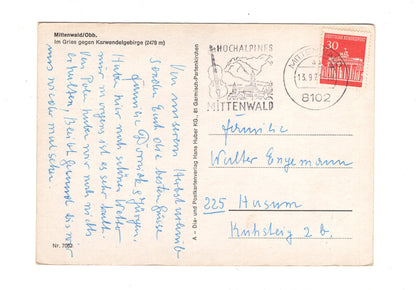 Mittenwald/Obb.
Im Gries gegen Karwendelgebirge (2476 m)
Von unserem Herbsturlaub
senden Euch die besten Grüsse
Familie
Jürgen.
Hatten hier noch schönes Wetter
nur morgens ist es sehr kalt.
Von haben wir noch nichts
erhalten, Bleibt gesund bis wir
uns wieder mal sehen.
Nr. 7062
A – Dia- und Postkartenverlag Hans Huber KG., 81 Garmisch-Partenkirchen
HOCHALPINES
MITTENWALD
8102
DEUTSCHE BUNDESPOST
30
Familie
Walter Engemann
225 Husum
Kuhsteig 2 b.